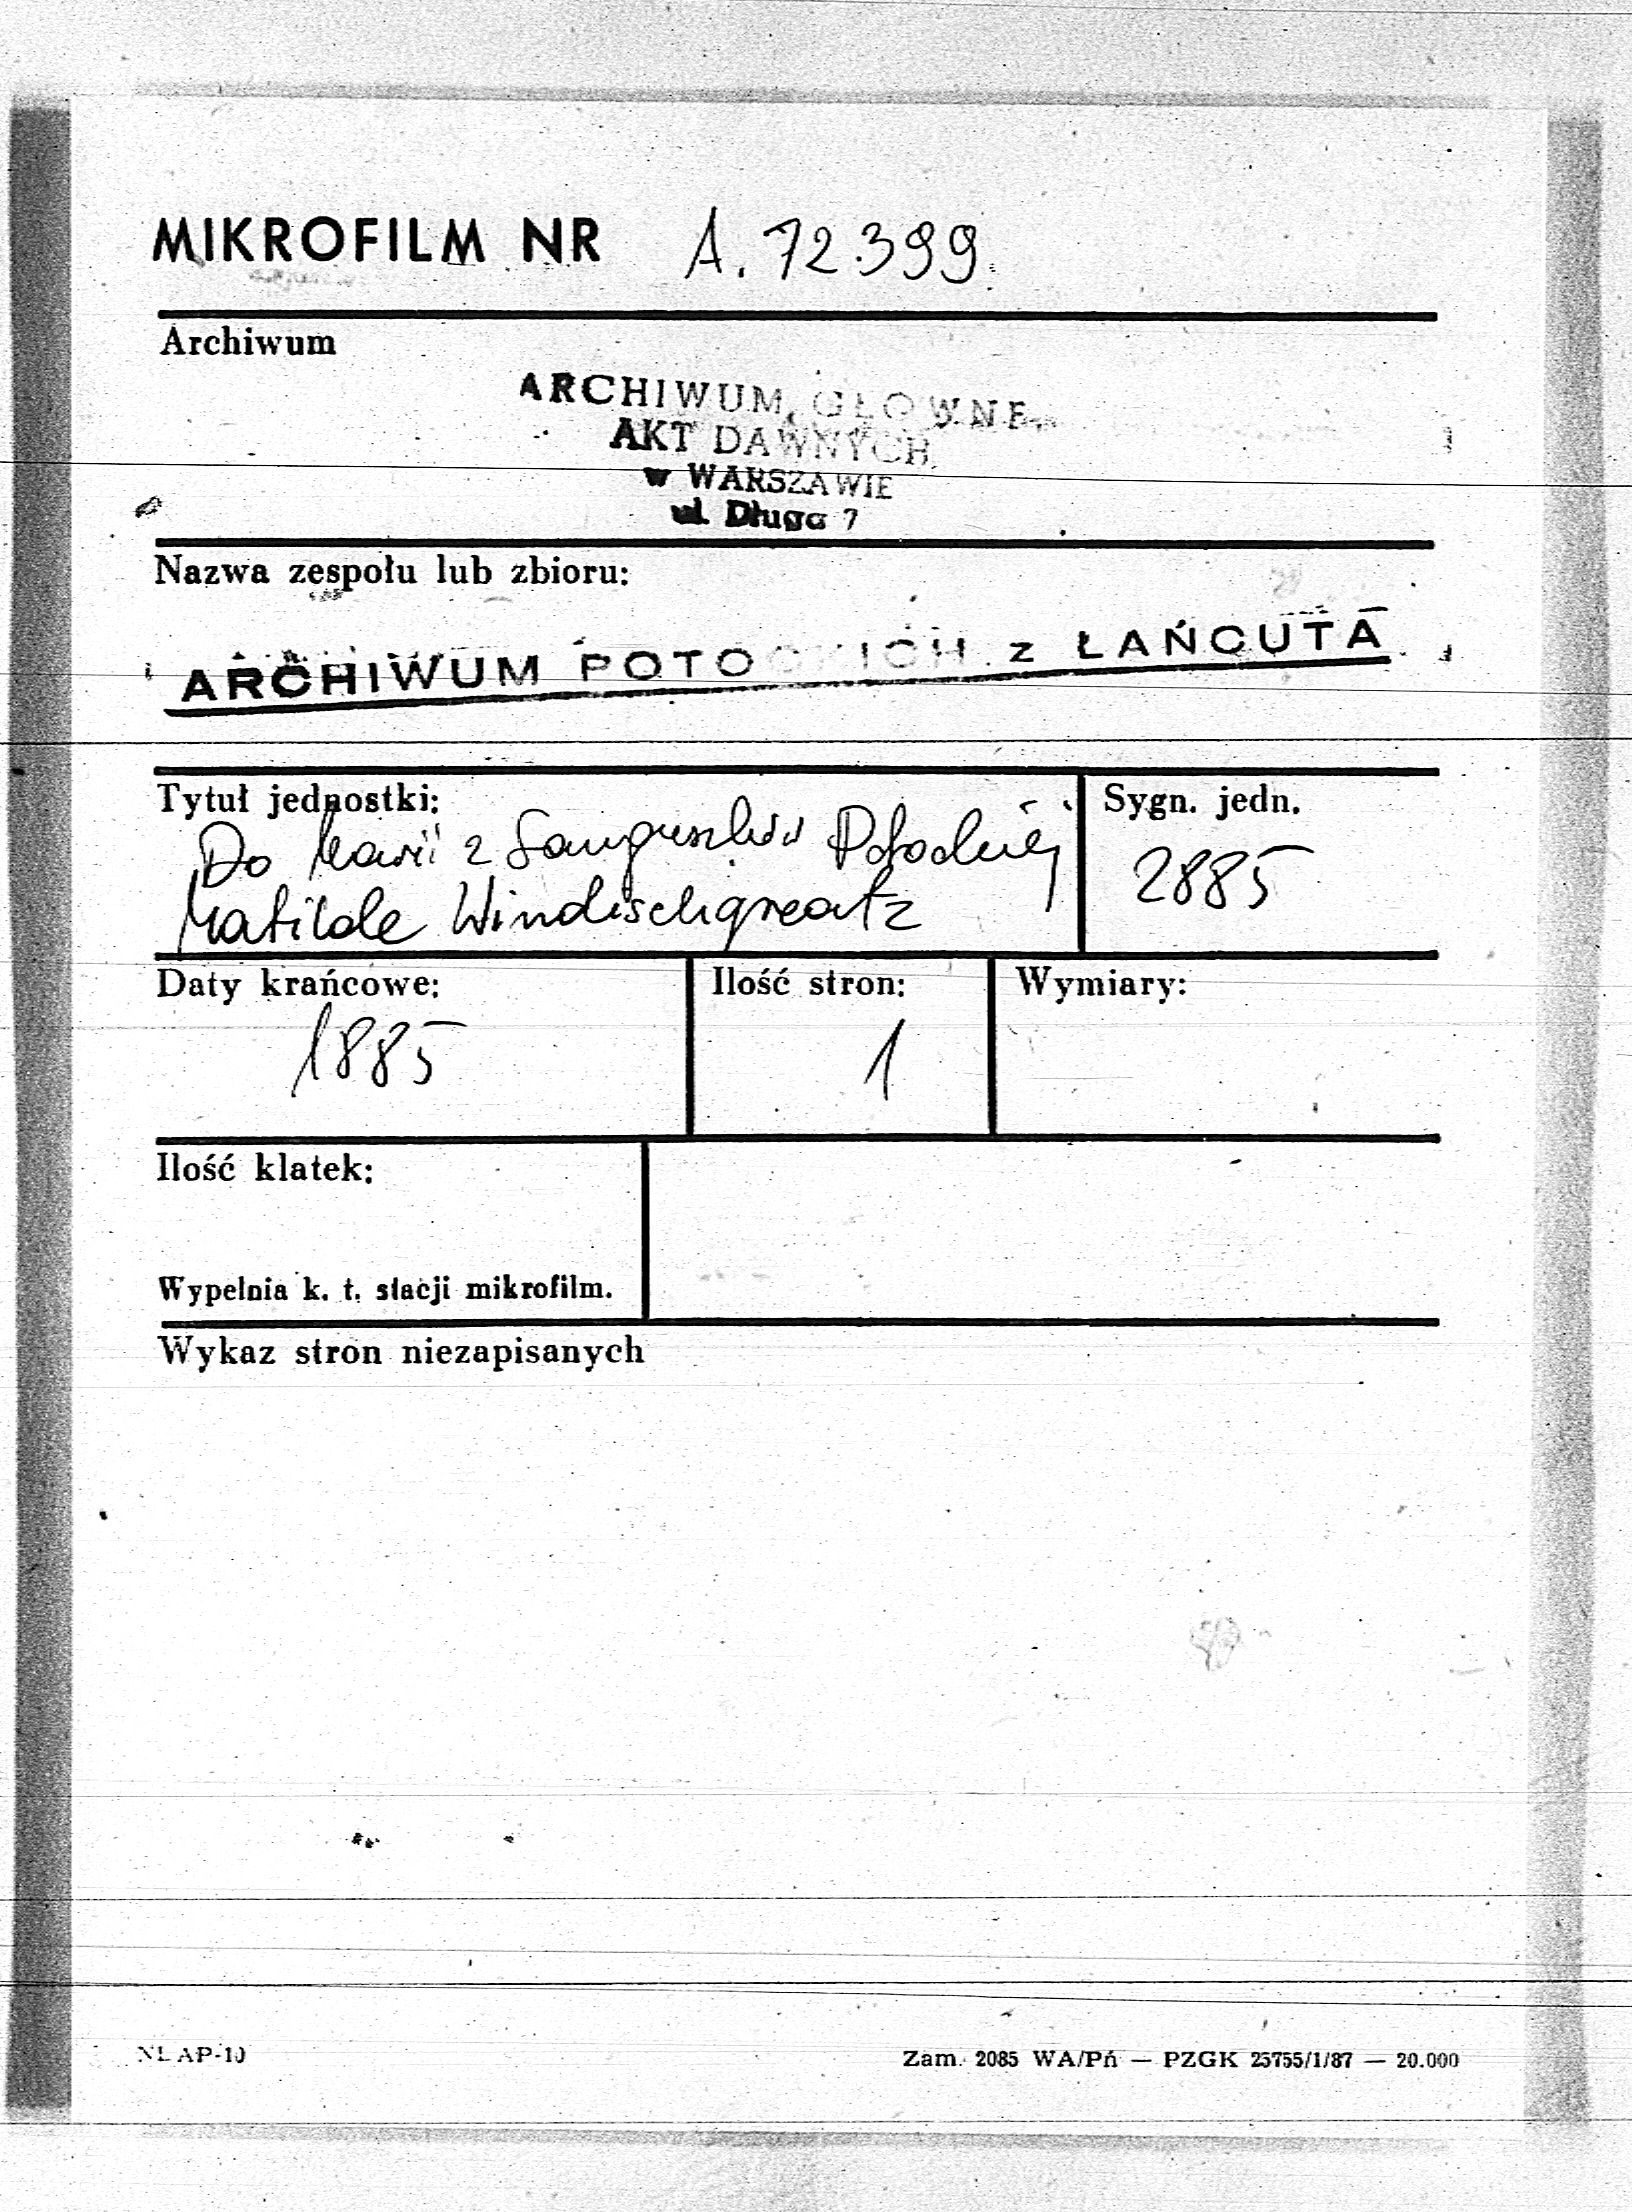 MIKROFILM NR A. 72.399
Archiwum
ARCHIWUM GŁOWNE
AKT DAWNYCH
w WARSZAWIE
ul. Długa 7
Nazwa zespołu lub zbioru:
ARCHIWUM POTOCKICH z ŁAŃCUTA
Tytuł jednostki: Sygn. jedn.
Do Marii z Sanguszków Potockiej
Matilde Windischgreatz 2885
Daty krańcowe: Ilość stron: Wymiary:
1885 1
Ilość klatek:
Wypełnia k. t. stacji mikrofilm.
Wykaz stron niezapisanych
NL AP-10 Zam. 2085 WA/Pń — PZGK 25755/1/87 — 20.000